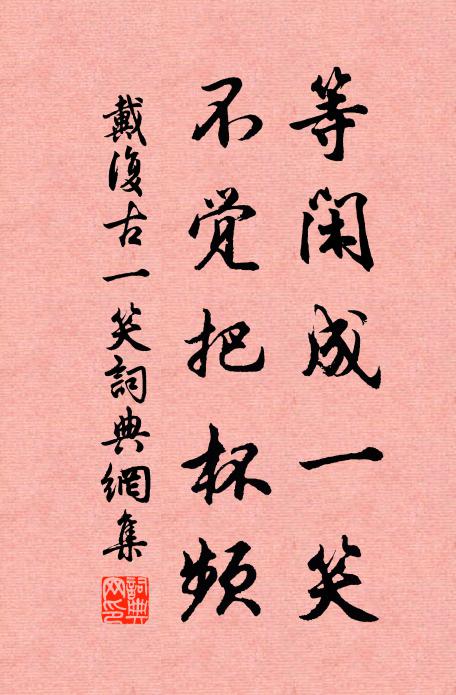 等闲成一笑
不觉把杯频
戴復古一笑詞典網集
詞典網印